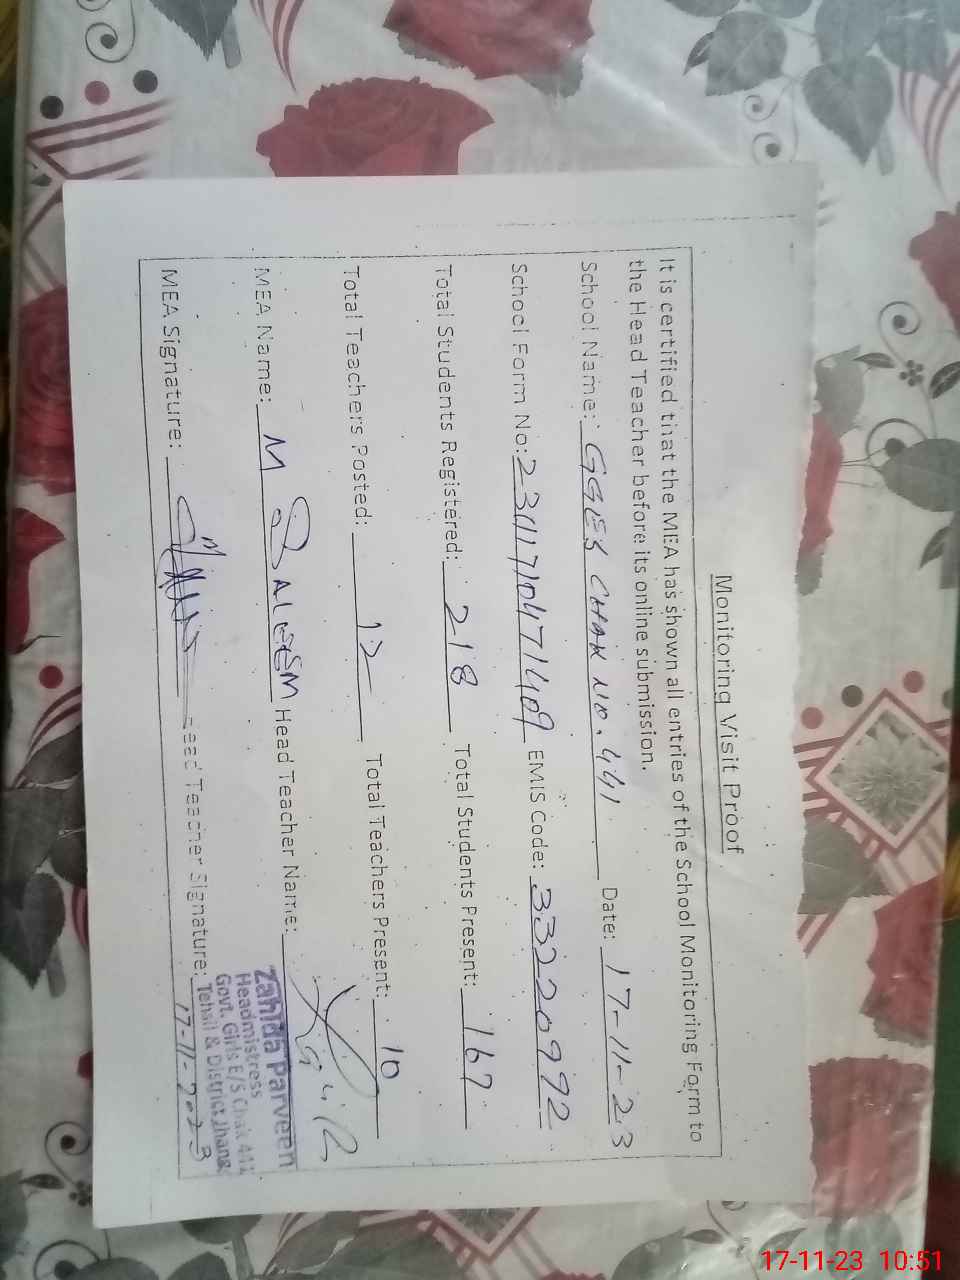 Monitoring Visit Proof
It is certified that the MEA has shown all entries of the School Monitoring Form to
the Head Teacher before its online submission.
School Name: GGES CHAK NO. 441 Date: 17-11-23
School Form No: EMIS Code: 33220972
Total Students Registered: 218 Total Students Present: 167
Total Teachers Posted: 12 Total Teachers Present: 10
MEA Name: M SALEEM Head Teacher Name:
Zahida Parveen
Headmistress
Govt. Girls E/S Chak 441
Tehsil & District Jhang
MEA Signature: Head Teacher Signature:
17-11-2023
17-11-23 10:51